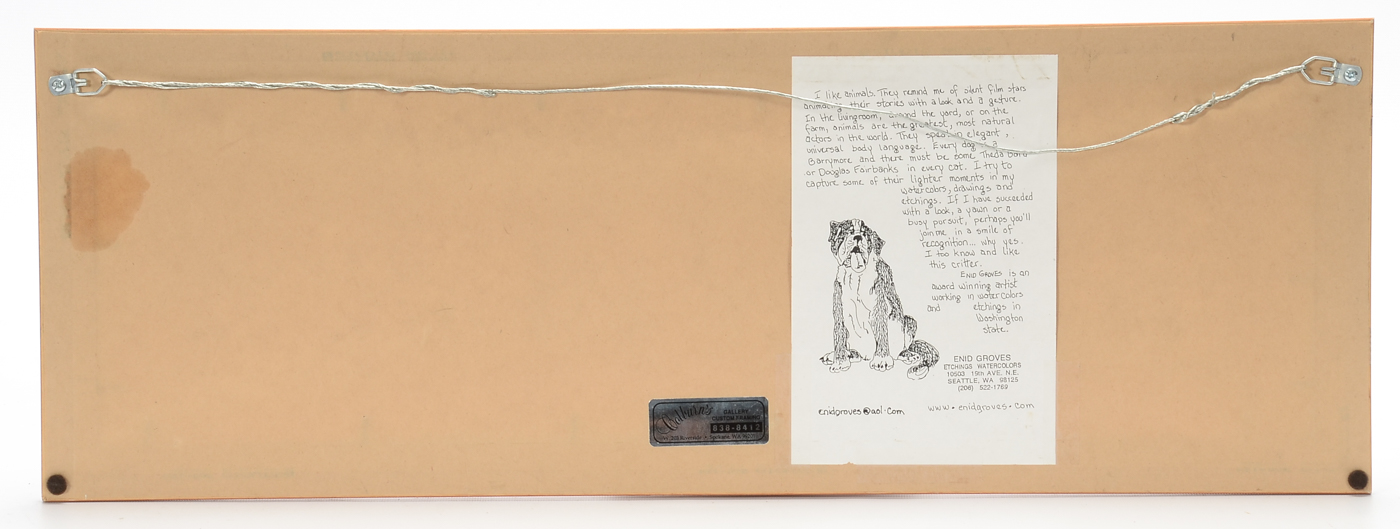 I like animals. They remind me of silent film stars
animating their stories with a look and a gesture.
In the livingroom, around the yard, or on the
farm, animals are the greatest, most natural
actors in the world. They speak in elegant,
universal body language. Every dog a
Barrymore and there must be some Theda Bara
or Douglas Fairbanks in every cat. I try to
capture some of their lighter moments in my
watercolors, drawings and
etchings. If I have succeeded
with a look, a yawn or a
busy pursuit, perhaps you'll
join me in a smile of
recognition... why yes.
I too know and like
this critter.
ENID GROVES is an
award winning artist
working in watercolors
and etchings in
Washington
state.
ENID GROVES
ETCHINGS WATERCOLORS
10503 19th AVE. N.E.
SEATTLE, WA 98125
(206) 522-1769
enidgroves@aol.com www.enidgroves.com
GALLERY
CUSTOM FRAMING
838-8412
Spokane, WA